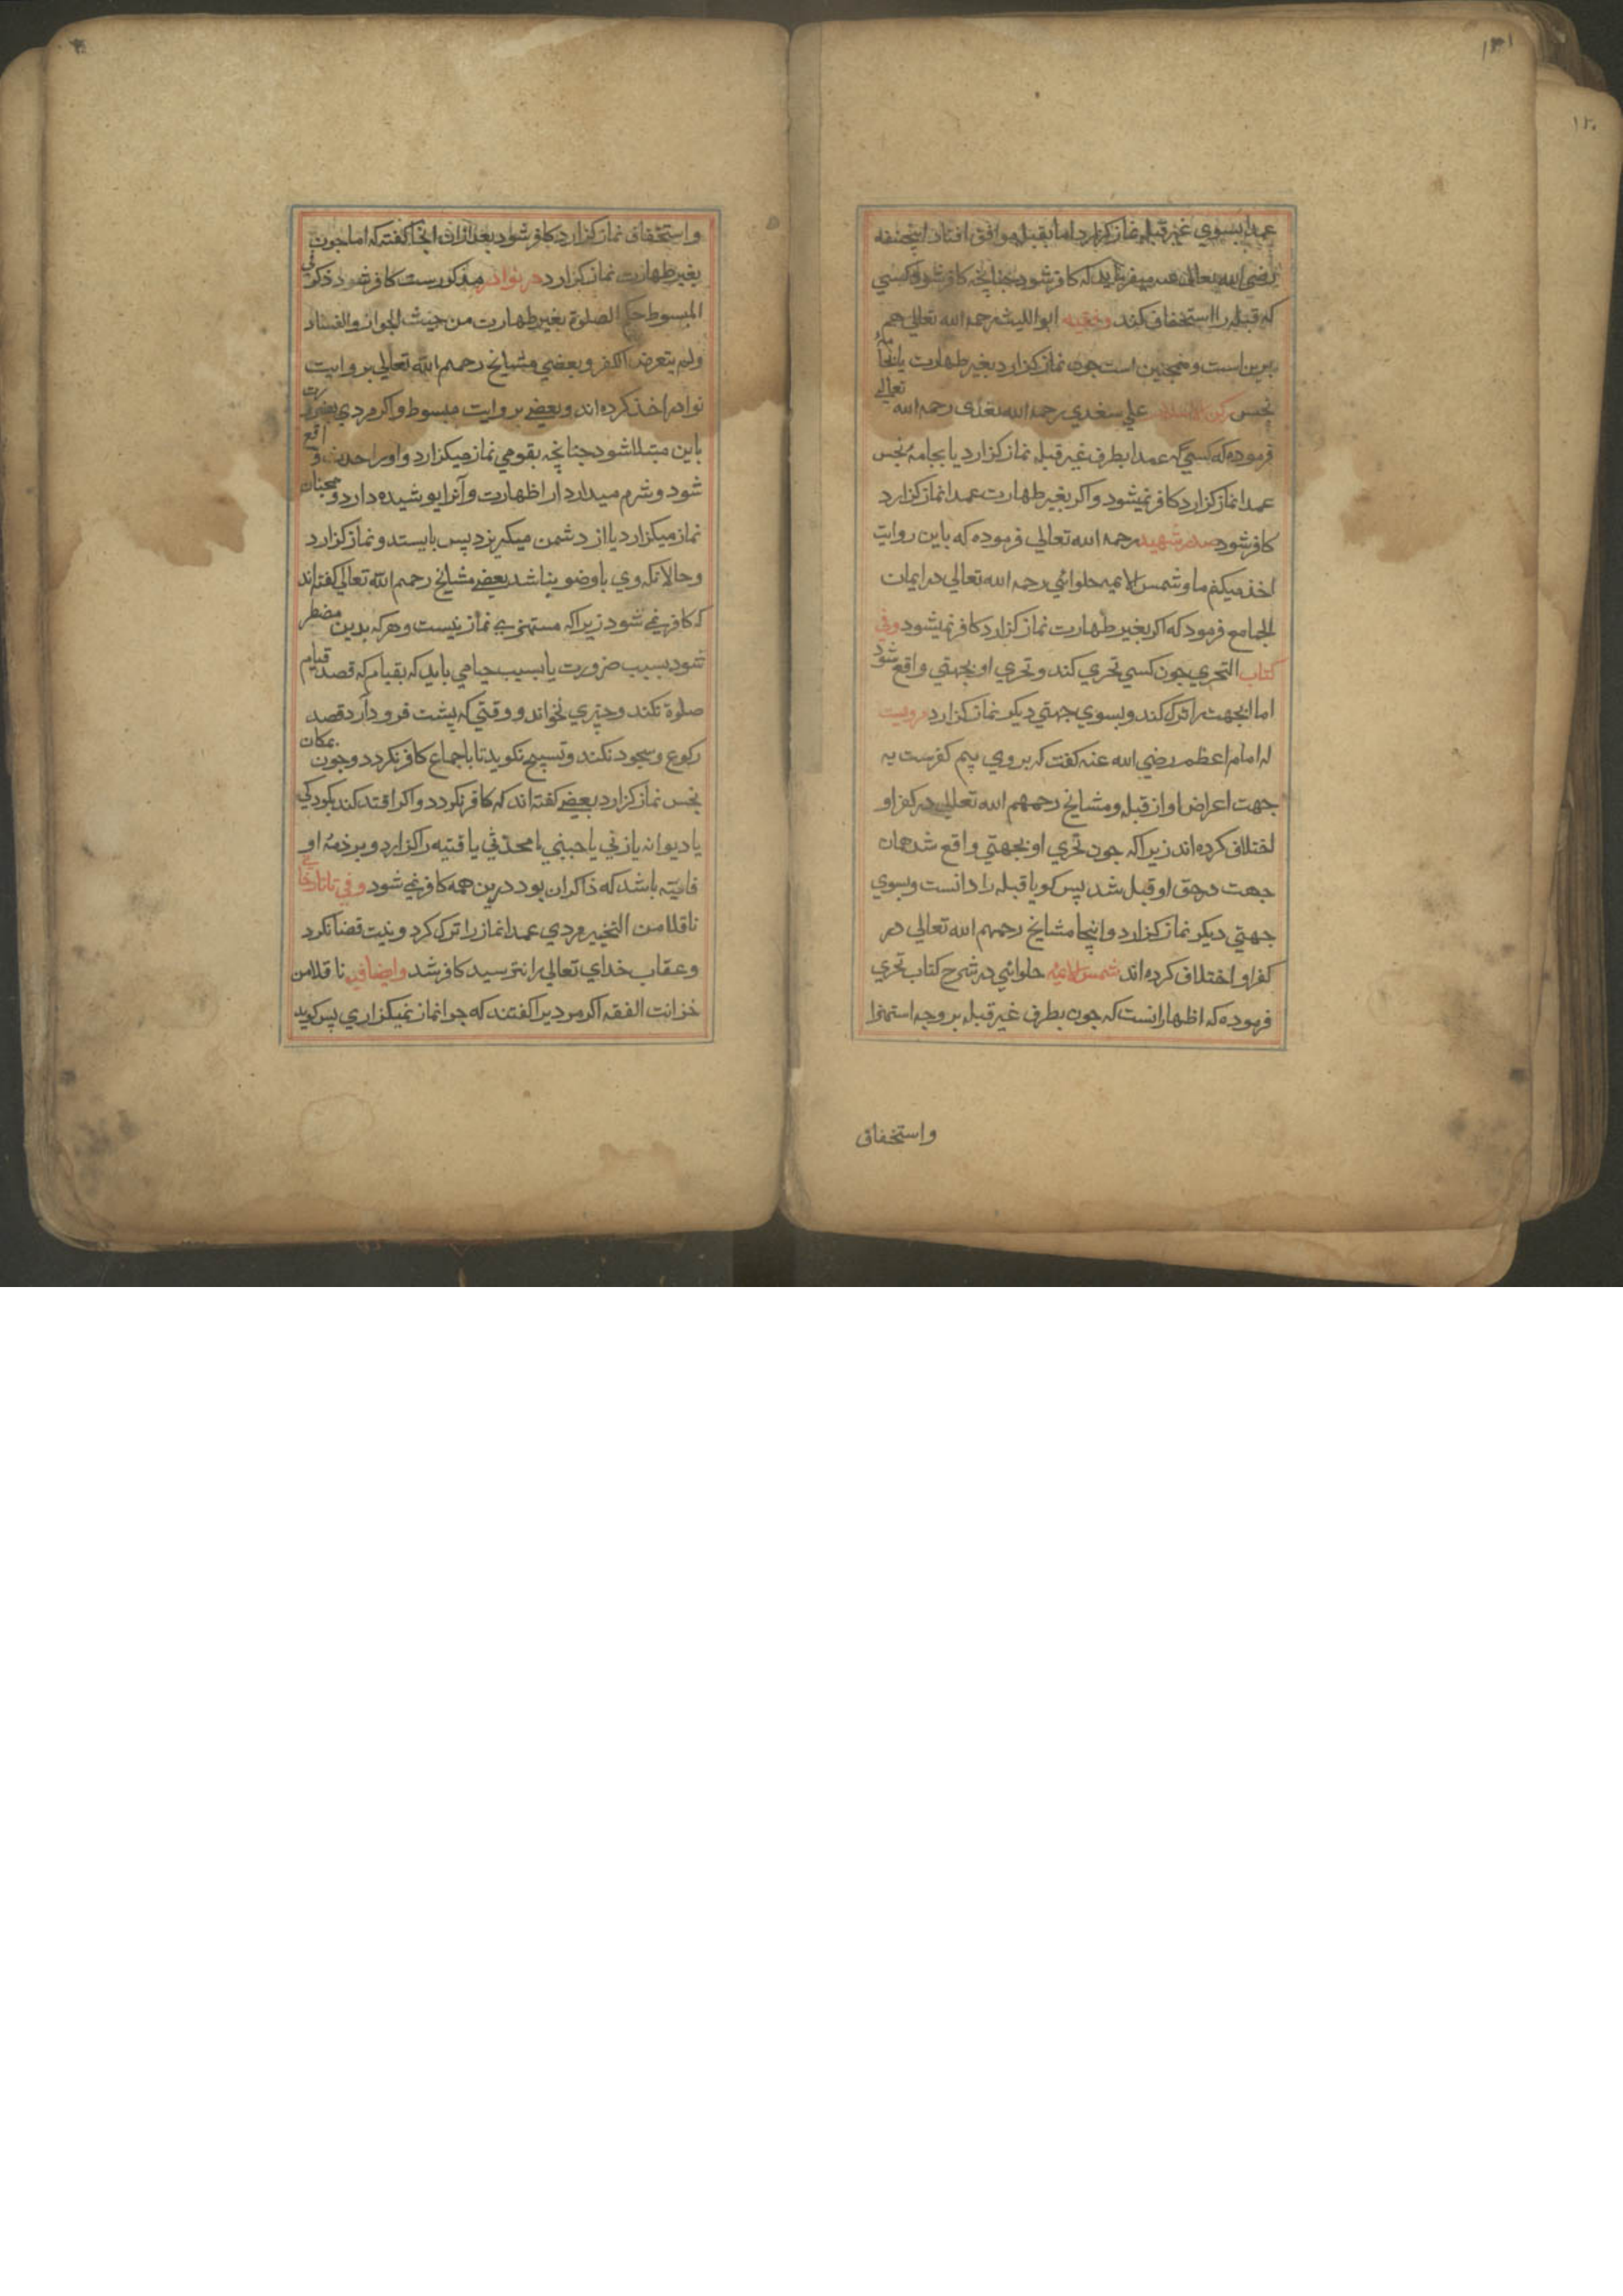 ١٣١
١٢٠
عمدا بسوي غير قبله نماز كزارد اما بقبله موافق افتاد ابيحنيفه
رضي الله تعالى عنه ميفرمايد كه كافر شود جنانجه كافر شود كسي
كه قبله را استخفاف كند وفقيه ابو الليث رحمه الله تعالي هم
برين است وهمجنين است جون نماز كزارد بغير طهارت يا بجامهٔ
نجس ركن الاسلام علي سغدي رحمه الله تعالي
فرموده كه كسي كه عمدا بطرف غير قبله نماز كزارد يا بجامهٔ نجس
عمدا نماز كزارد كافر نميشود واكر بغير طهارت عمدا نماز كزارد
كافر شود صدر شهيد رحمه الله تعالي فرموده كه باين روايت
اخذ ميكنم ما وشمس الايمه حلوائي رحمه الله تعالي در ايمان
الجامع فرمود كه اكر بغير طهارت نماز كزارد كافر نميشود وفي
كتاب التحري جون كسي تحري كند وتحري او بجهتي واقع شود
اما انجهت را ترك كند وبسوي جهتي ديكر نماز كزارد مرويست
از امام اعظم رضي الله عنه كفت كه بروي بيم كفرست به
جهت اعراض او از قبله ومشايخ رحمهم الله تعالي در كفر او
اختلاف كرده اند زيرا كه جون تحري او بجهتي واقع شد همان
جهت در حق او قبله شد پس كويا قبله را دانست وبسوي
جهتي ديكر نماز كزارد واينجا مشايخ رحمهم الله تعالي در
كفر او اختلاف كرده اند شمس الايمه حلوائي در شرح كتاب تحري
فرموده كه اظهر انست كه جون بطرف غير قبله بر وجه استهزا
واستخفاف
واستخفاف نماز كزارد كافر شود بعد ازان انجا كفته كه اما جون
بغير طهارت نماز كزارد در نوادر مذكورست كافر شود ذكر في
المبسوط حكم الصلوة بغير طهارت من حيث الجواز والفساد
ولم يتعرض الكفر وبعضي مشايخ رحمهم الله تعالي بروايت
نوادر اخذ كرده اند وبعضي بروايت مبسوط واكر مردي بضرورت
باين مبتلا شود جنانجه بقومي نماز ميكزارد واورا حدث واقع
شود وشرم ميدارد از اظهارت وآنرا پوشيده دارد وهمجنان
نماز ميكزارد يا از دشمن ميكريزد پس بايستد ونماز كزارد
وحالانكه وي باوضو بناشد بعضي مشايخ رحمهم الله تعالي كفته اند
كه كافر نمي شود زيرا كه مستهزي نماز نيست وهر كه بدين مضطر
شود بسبب ضرورت يا بسبب حيامي بايد كه بقيام كه قصد قيام
صلوة نكند وچيزي نخواند ووقتي كه پشت فرو دارد قصد
ركوع وسجود نكند وتسبيح نكويد تا باجماع كافر نكردد وجون بمكان
نجس نماز كزارد بعضي كفته اند كه كافر نكردد واكر اقتدا كند بكودكي
يا ديوانه يا زني يا جنبي يا محدثي يا قتيه را كزارد وبر ذمهٔ او
فايته باشد كه ذاكران بود درين همه كافر نمي شود وفي تاتارخاني
ناقلا من التخير مردي عمدا نماز را ترك كرد ونيت قضا نكرد
وعقاب خداي تعالي را نترسيد كافر شد وايضا فيه ناقلا من
خزانت الفقه اكر مرديرا كفتند كه جرا نماز نميكزاري پس كويد